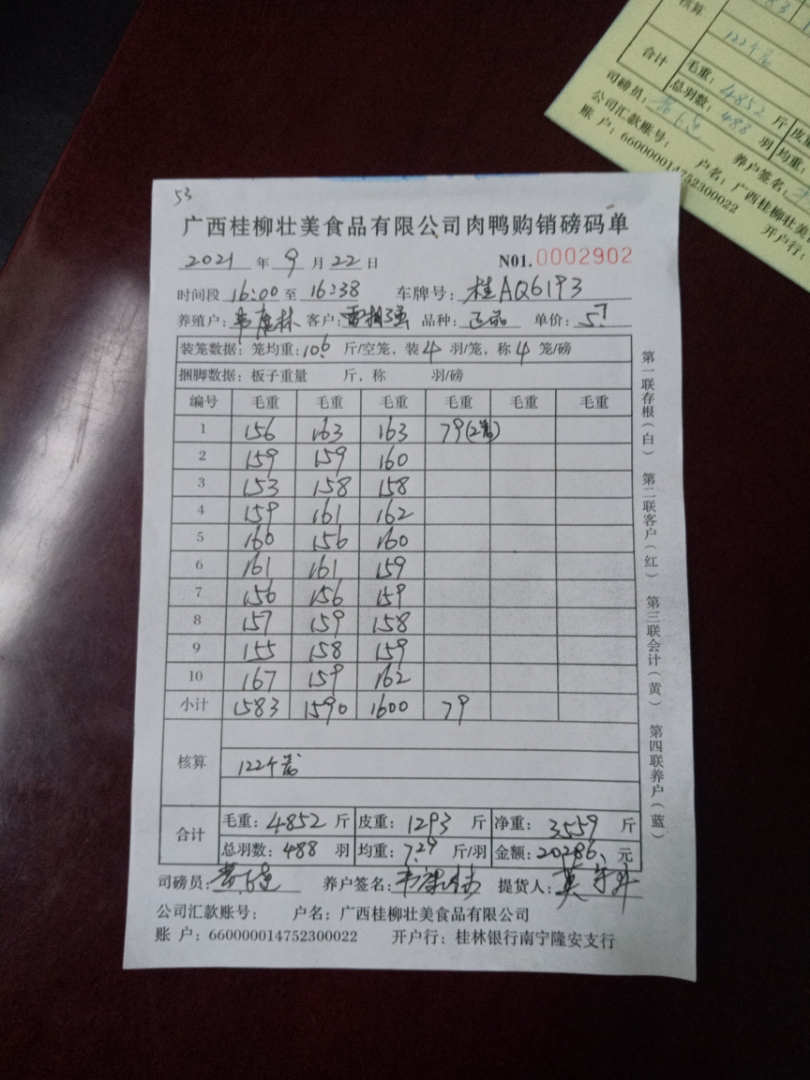 53
广西桂柳壮美食品有限公司肉鸭购销磅码单
2021 年 9 月 22 日 N01.0002902
时间段 16:00 至 16:38 车牌号：桂AQ6193
养殖户： 客户： 品种：正品 单价：5.7
装笼数据：笼均重：10.6 斤/空笼，装 4 羽/笼，称 4 笼/磅
捆脚数据：板子重量 斤，称 羽/磅
编号 毛重 毛重 毛重 毛重 毛重 毛重
1 156 163 163 79(2笼)
2 159 159 160
3 153 158 158
4 159 161 162
5 160 156 160
6 161 161 159
7 156 156 159
8 157 159 158
9 155 158 159
10 167 159 162
小计 1583 1590 1600 79
核算 122个笼
合计 毛重：4852 斤 皮重：1293 斤 净重：3559 斤
总羽数：488 羽 均重：7.29 斤/羽 金额：20286 元
司磅员： 养户签名： 提货人：
公司汇款账号： 户名：广西桂柳壮美食品有限公司
账 户：660000014752300022 开户行：桂林银行南宁隆安支行
第一联存根（白） 第二联客户（红） 第三联会计（黄） 第四联养户（蓝）
核算
122个笼
合计 毛重：4852 斤
总羽数：488 羽 均重：
司磅员： 养户签名：
公司汇款账号： 户名：广西桂柳壮美
账 户：660000014752300022 开户行：